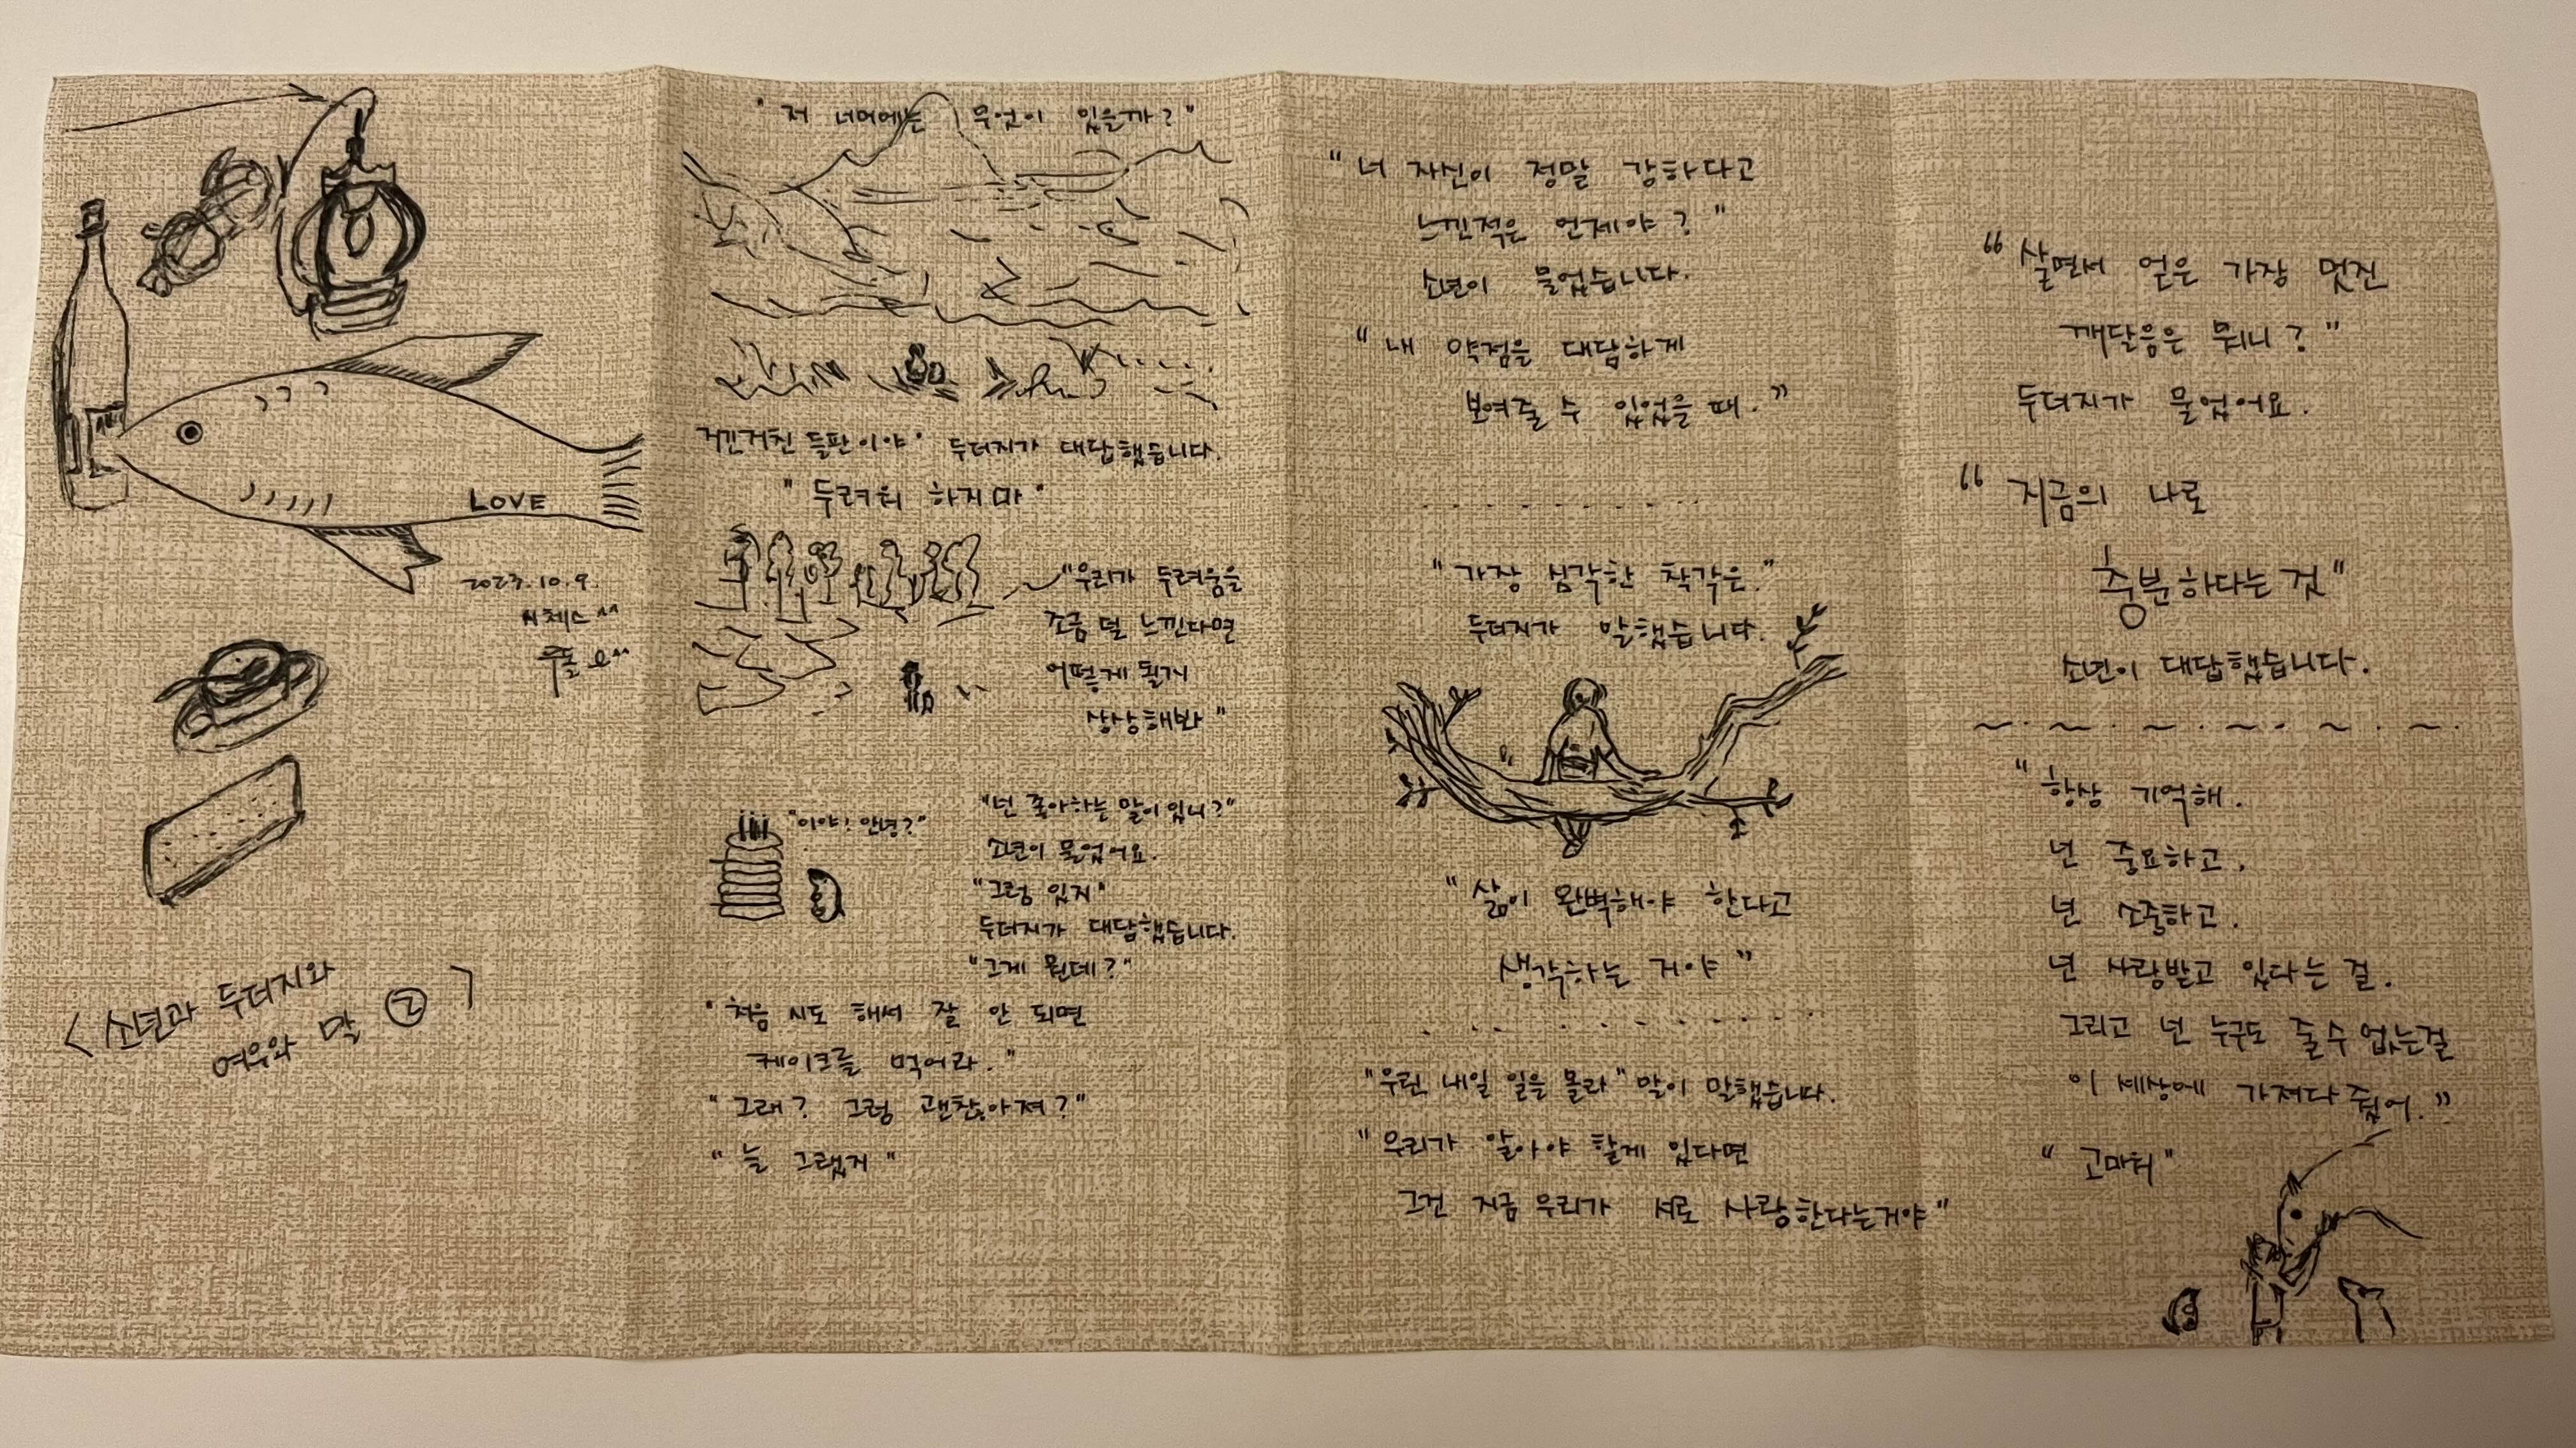 LOVE
2023.10.9.
시체스^^
<소년과 두더지와
여우와 말 ②>
"저 너머에는 무엇이 있을까?"
거긴거친 들판이야" 두더지가 대답했습니다.
"두려워 하지마"
"우리가 두려움을
조금 덜 느낀다면
어떻게 될지
상상해봐"
"이야! 안녕?"
"넌 좋아하는 말이 있니?"
소년이 물었어요.
"그럼 있지"
두더지가 대답했습니다.
"그게 뭔데?"
"처음 시도 해서 잘 안 되면
케이크를 먹어라."
"그래? 그럼 괜찮아져?"
"늘 그랬지"
"너 자신이 정말 강하다고
느낀적은 언제야?"
소년이 물었습니다.
"내 약점을 대담하게
보여줄 수 있었을 때."
"가장 심각한 착각은."
두더지가 말했습니다.
"삶이 완벽해야 한다고
생각하는 거야"
"우린 내일 일을 몰라" 말이 말했습니다.
"우리가 알아야 할게 있다면
그건 지금 우리가 서로 사랑한다는거야"
"살면서 얻은 가장 멋진
깨달음은 뭐니?"
두더지가 물었어요.
"지금의 나로
충분하다는 것"
소년이 대답했습니다.
"항상 기억해.
넌 중요하고.
넌 소중하고.
넌 사랑받고 있다는 걸.
그리고 넌 누구도 줄수 없는걸
이 세상에 가져다 줬어."
"고마워"